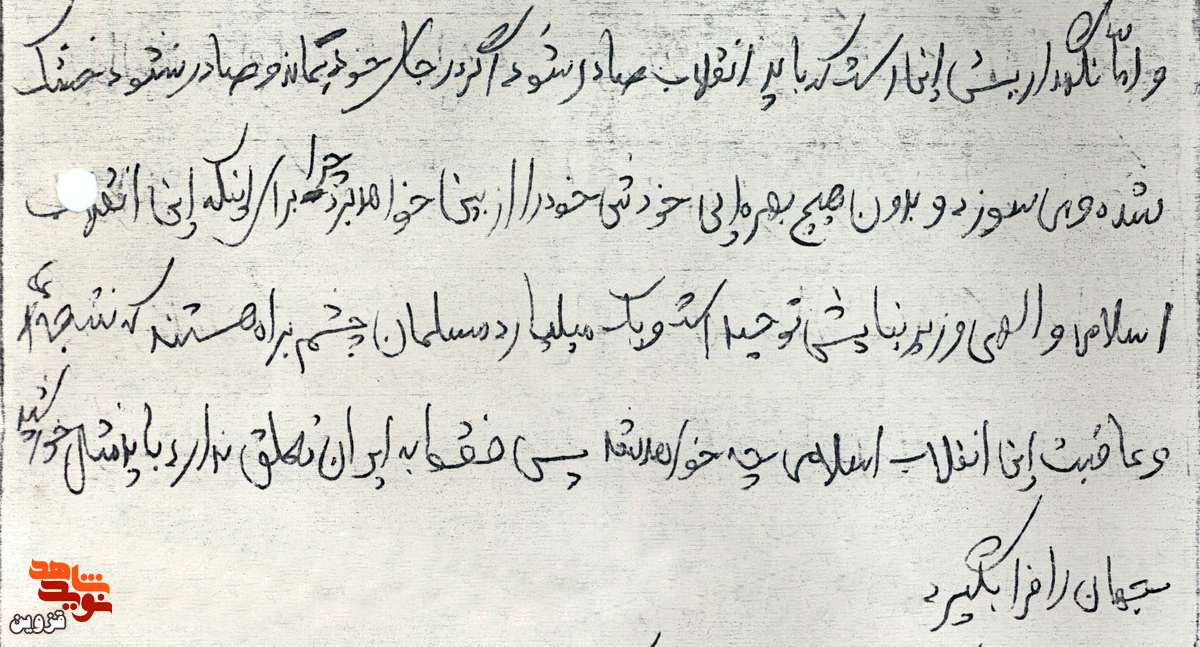 و امّا نگهداریش این است که باید انقلاب صادر شود اگر در جای خود بماند و صادر نشود خشک
شده و می سوزد و بدون هیچ بهره ایی خودش خود را از بین خواهد برد چرا برای اینکه این انقلاب
اسلامی و الهی و زیربنایش توحید است و یک میلیارد مسلمان چشم براه هستند که نتیجه
و عاقبت این انقلاب اسلامی چه خواهد شد پس فقط به ایران تعلق ندارد باید مثل خورشید
جهان را فرا بگیرد
نوید شاهد
قزوین